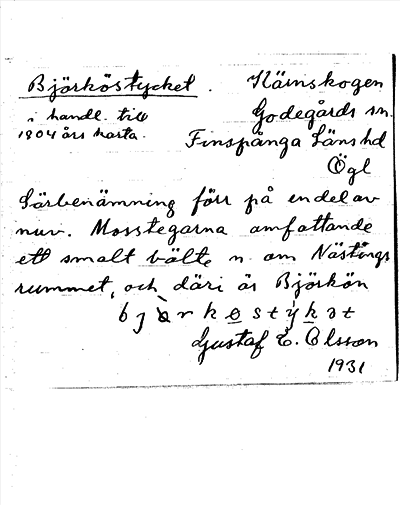 Björköstycket. Hämskogen
i handl. till Godegårds sn.
1804 års karta. Finspånga Läns hd
Ögl
Särbenämning förr på en del av
nuv. Mosstegarna omfattande
ett smalt bälte n. om Nästängs
rummet, och däri är Björkön
Gustaf E. Olsson
1931